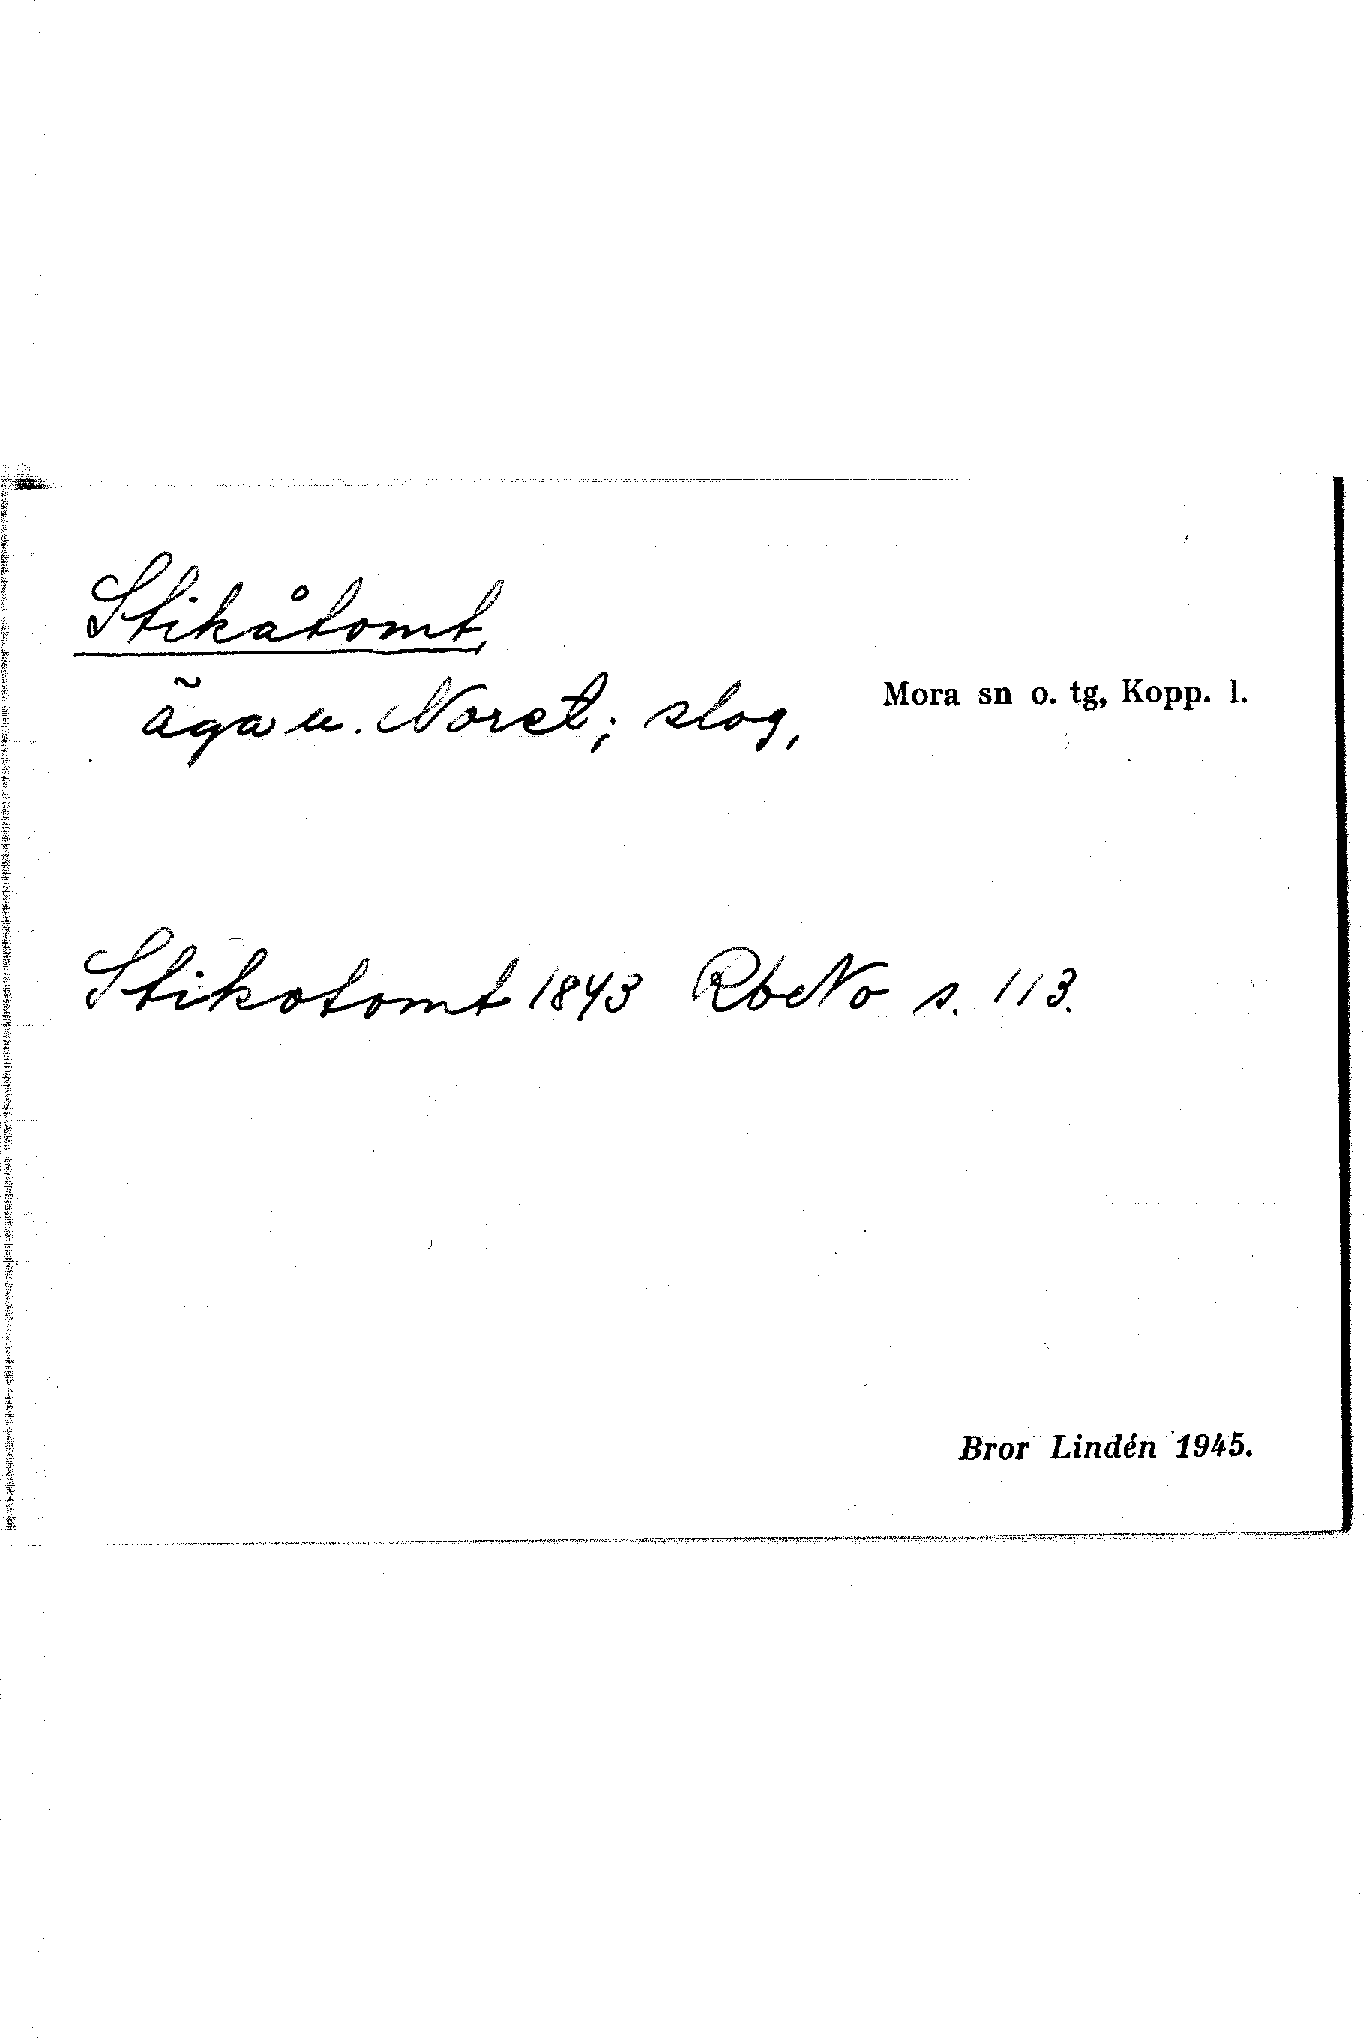 Stikåtomt,
äga u. Noret; slog,
Mora sn o. tg, Kopp. l.
Stikotomt 1843 RbNo s. 113.
Bror Lindén 1945.